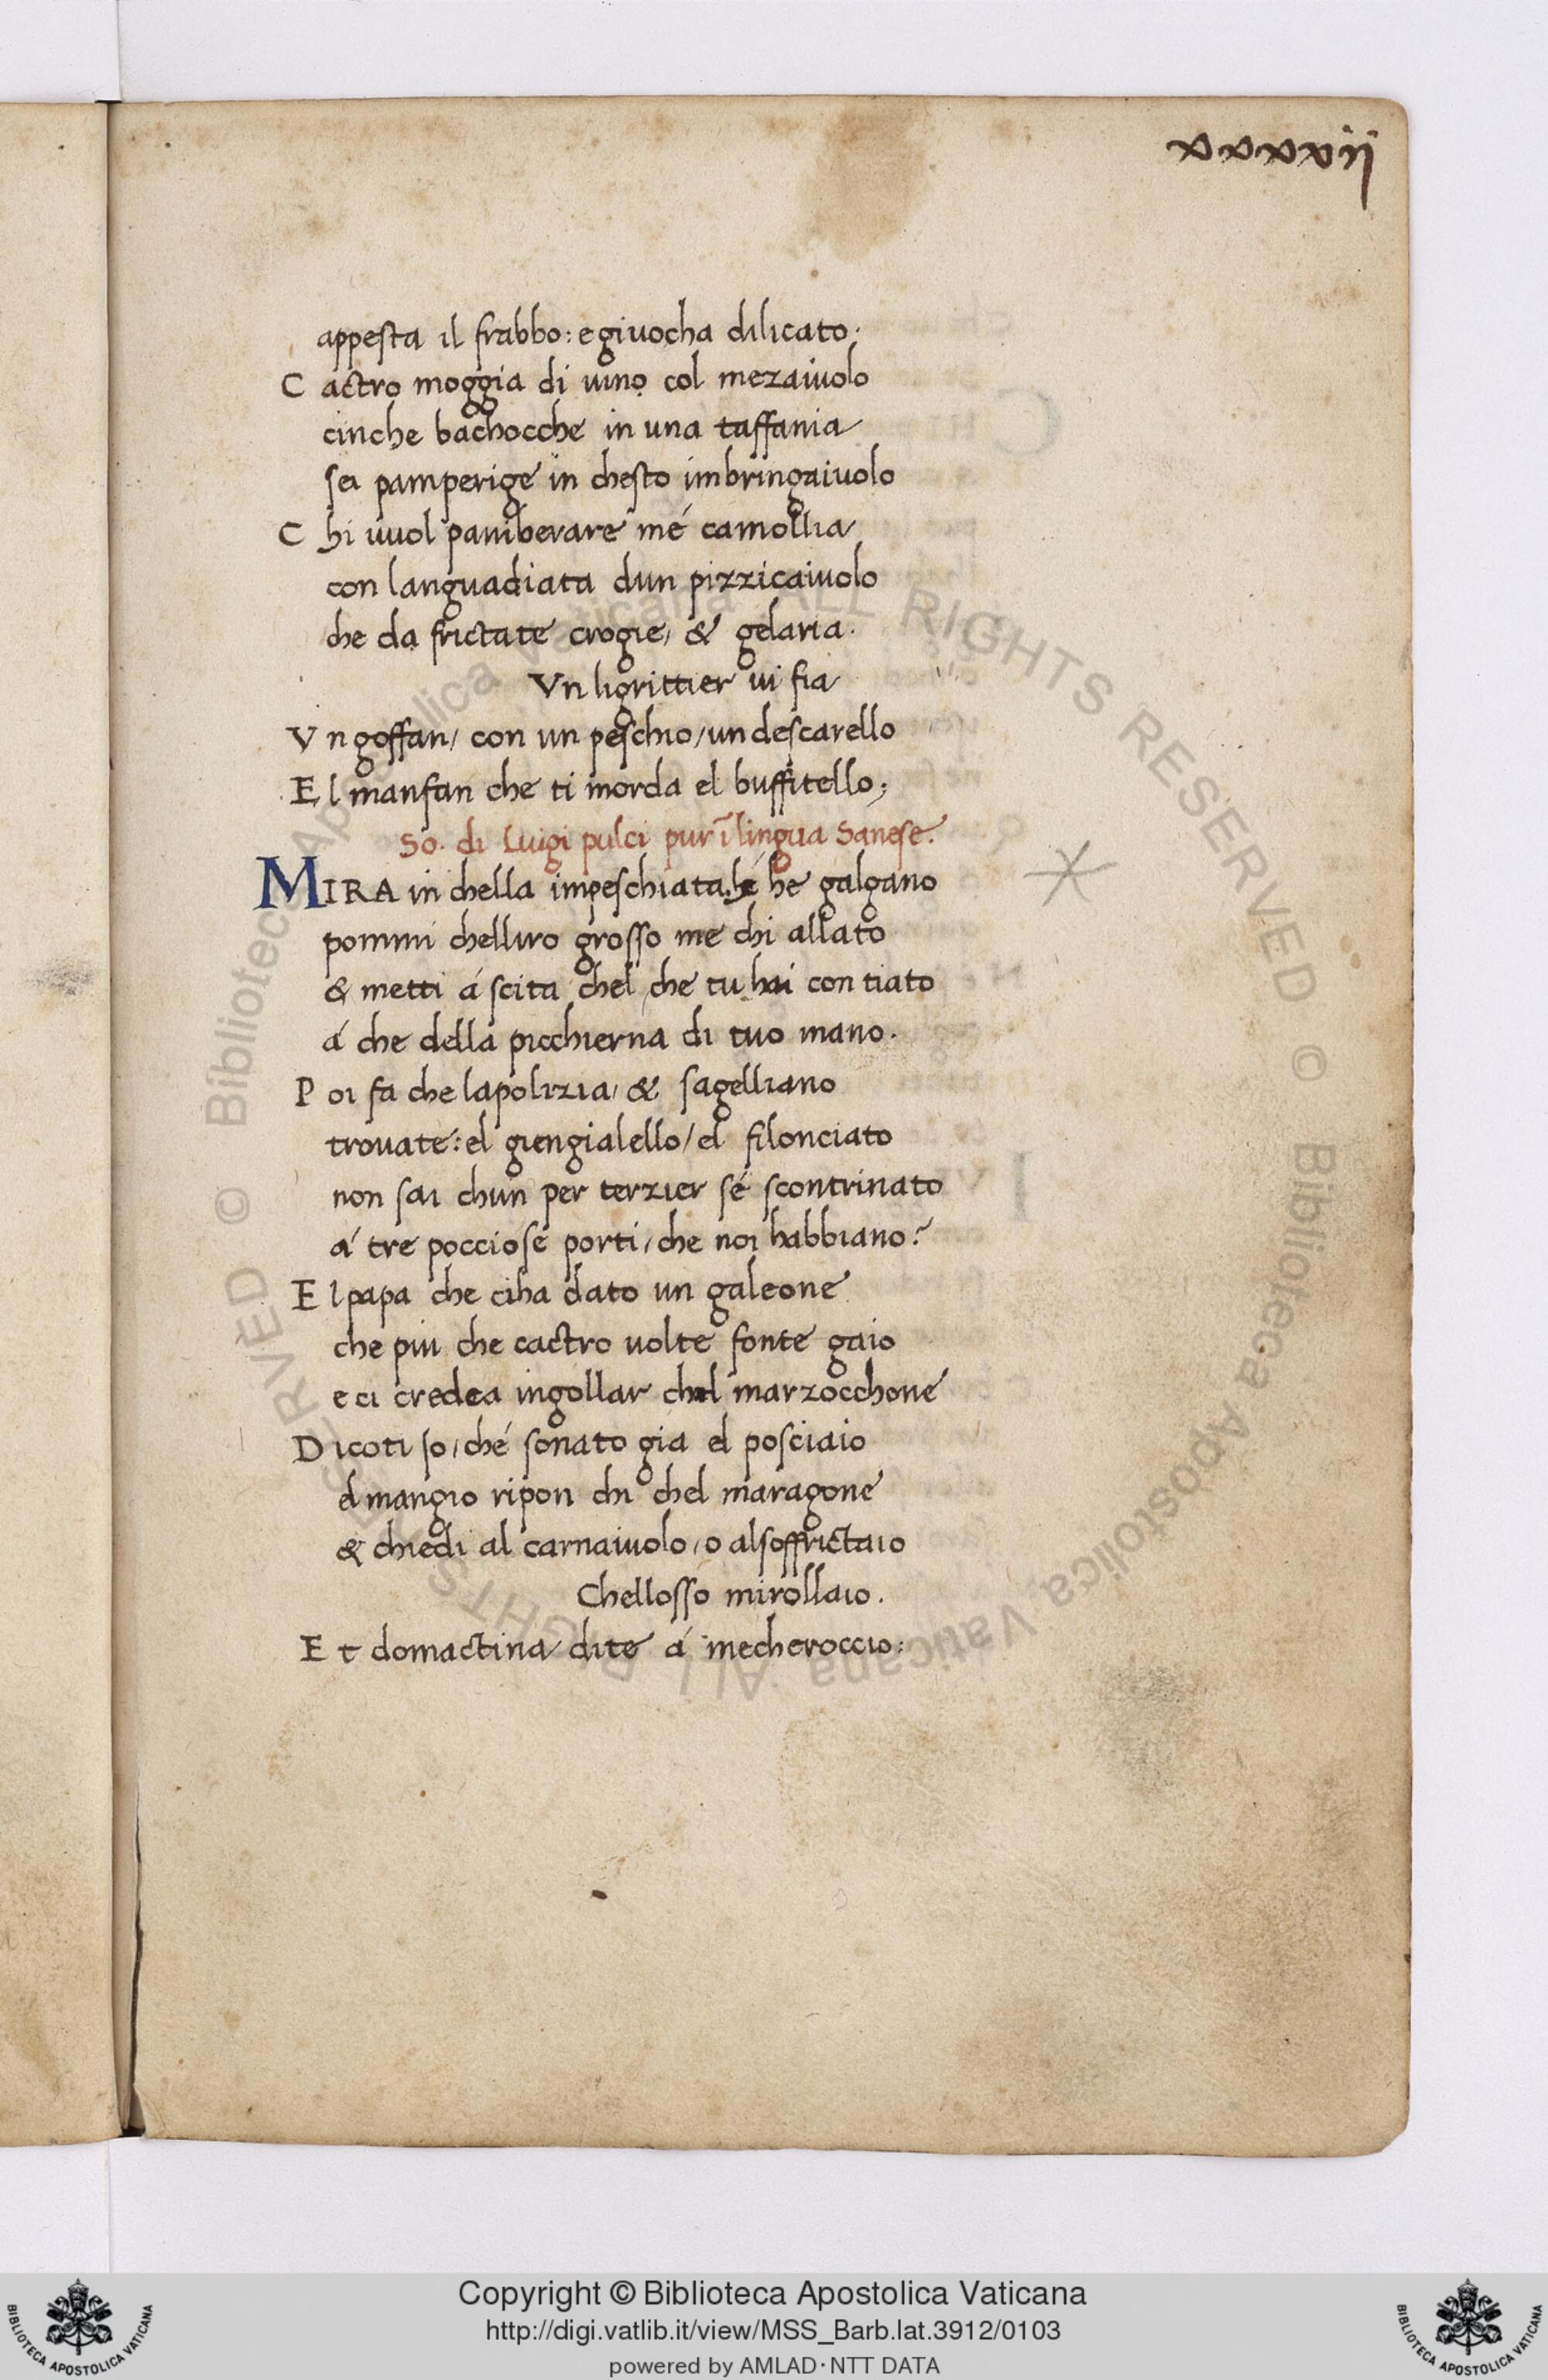 xxxxvij
appesta il frabbo: e giuocha dilicato.
C actro moggia di uino col mezaiuolo
cinche bachocche in una taffania
sei pamperige in chesto imbringaiuolo
C hi uuol pamberare mé camollia
con languadiata dun pizzicaiuolo
che da frictate crogie, & gelaria.
Vn ligrittier ui fia
V n goffan, con un peschio, un descarello
E l manfan che ti morda el buffitello;
So. di Luigi pulci pur ĩ lingua Sanese.
MIRA in chella impeschiata he galgano
pommi chelliro grosso me chi allato
& metti á scita chel che tu hai con tiato
á che della picchierna di tuo mano.
P oi fa che lapolizia, & sagelliano
trouate: el giengialello, el filonciato
non sai chun per terzier sé scontrinato
á tre pocciose porti, che noi habbiano?
E l papa che ciha dato un galeone
che piu che cactro uolte fonte gaio
e ci credea ingollar chel marzocchone
D icoti so, ché sonato gia el posciaio
el mangio ripon chi chel maragone
& chiedi al carnaiuolo, o alsoffrictaio
Chellosso mirollaio.
E t domactina dite á mecheroccio:
© Biblioteca Apostolica Vaticana ALL RIGHTS RESERVED © Biblioteca Apostolica Vaticana ALL RIGHTS RESERVED
Copyright © Biblioteca Apostolica Vaticana
http://digi.vatlib.it/view/MSS_Barb.lat.3912/0103
powered by AMLAD·NTT DATA
BIBLIOTECA APOSTOLICA VATICANA
BIBLIOTECA APOSTOLICA VATICANA